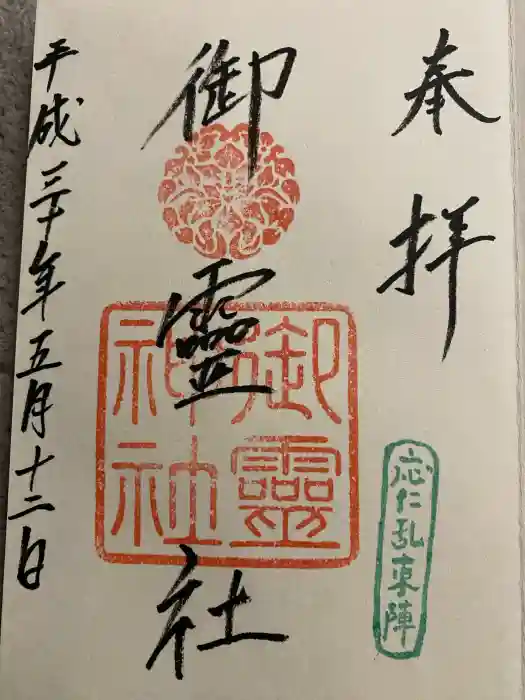 奉拝
応仁乱東陣
御靈社
御靈神社
平成三十年五月十二日